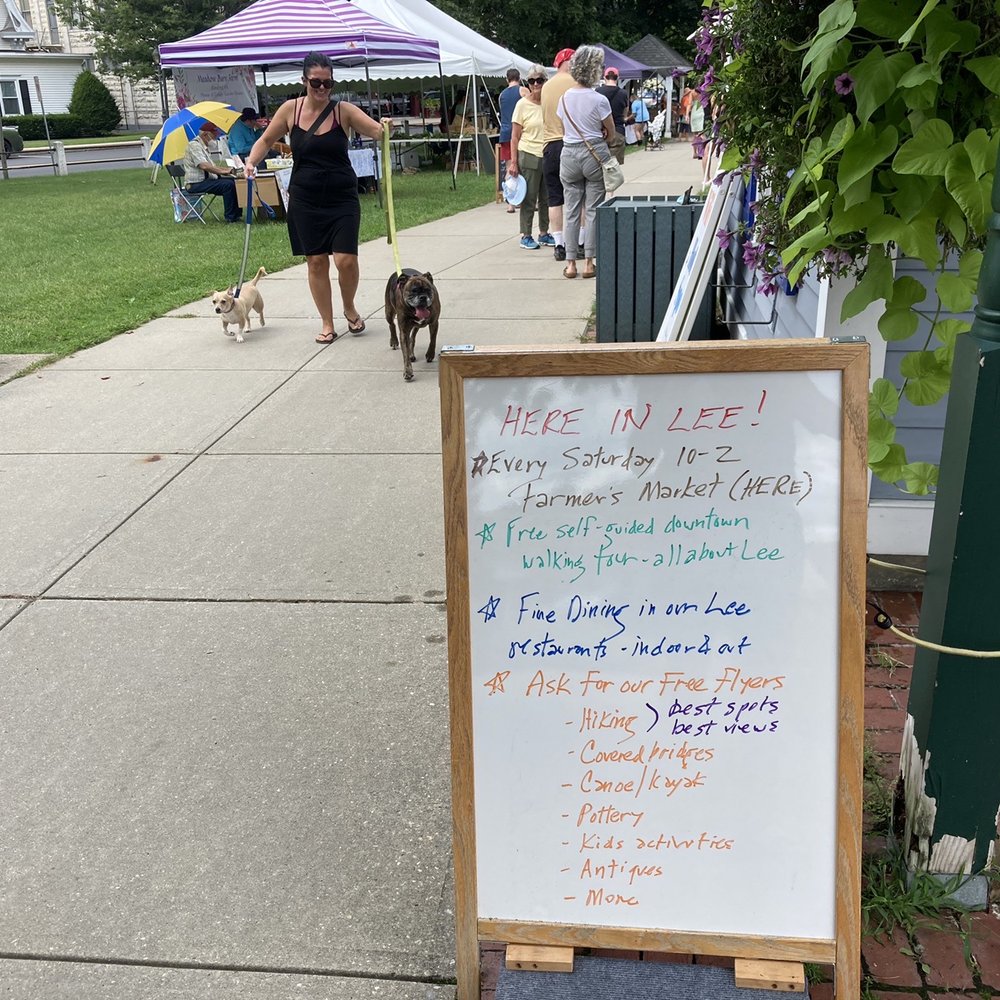 HERE IN LEE!
☆Every Saturday 10-2
Farmer's Market (HERE)
☆ Free self-guided downtown
walking tour - all about Lee
☆ Fine Dining in our Lee
restaurants - indoor & out
☆ Ask For our Free flyers
- Hiking ) best spots
best views
- Covered bridges
- Canoe/Kayak
- Pottery
- Kids activities
- Antiques
- More